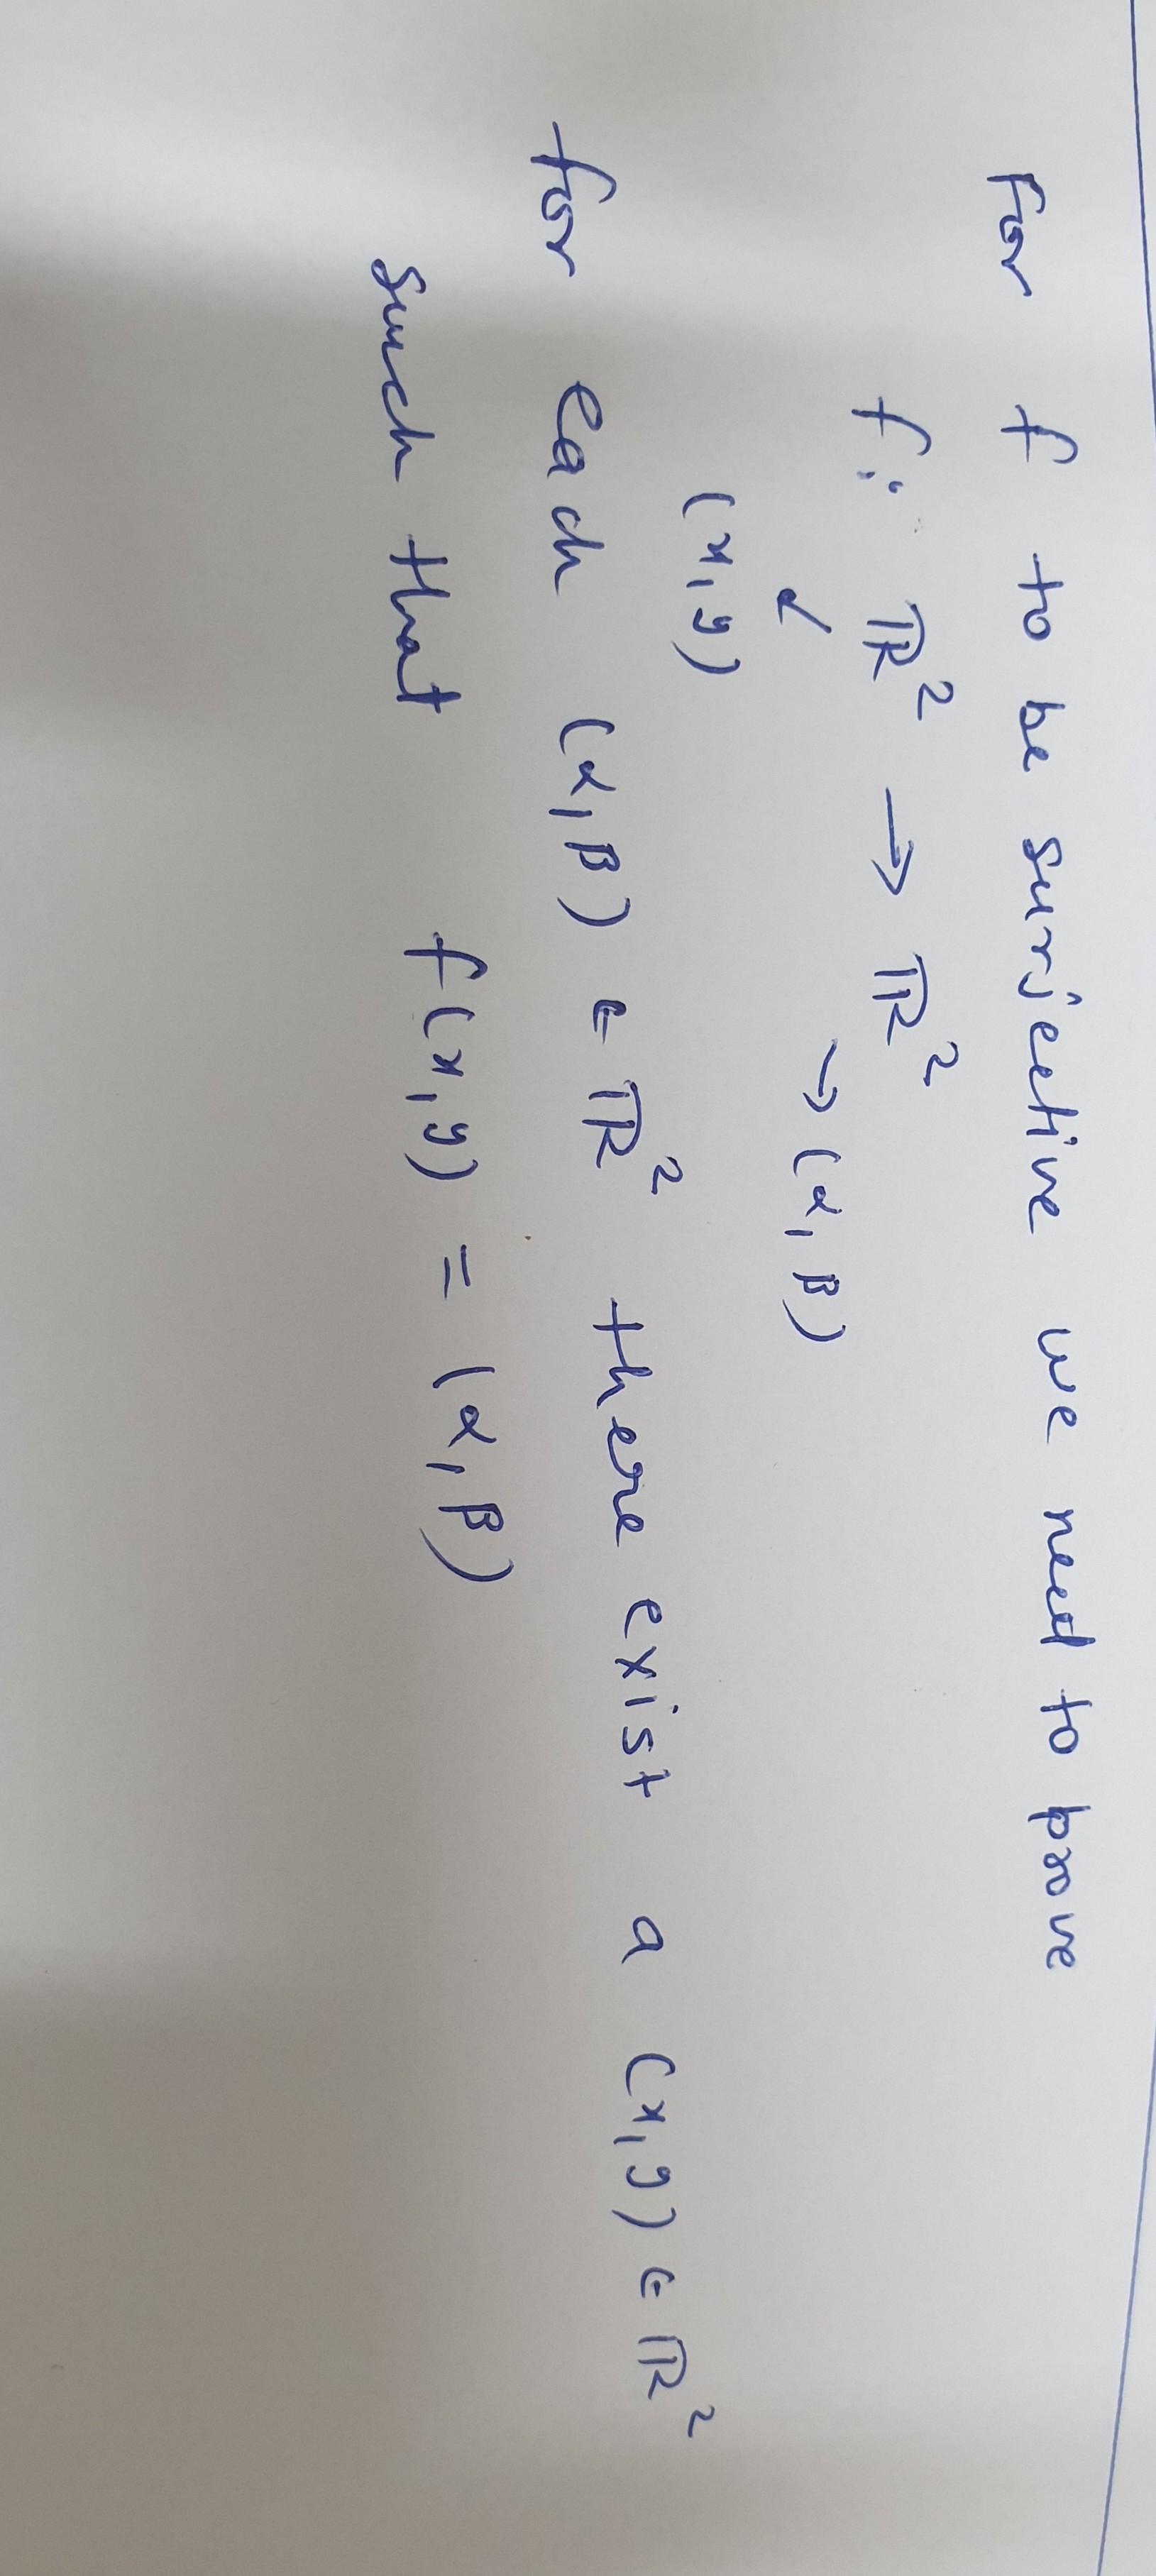 For f to be surjective we need to prove
f: ℝ² → ℝ²
(x,y) → (α,β)
for each (α,β) ∈ ℝ² there exist a (x,y) ∈ ℝ²
such that f(x,y) = (α,β)